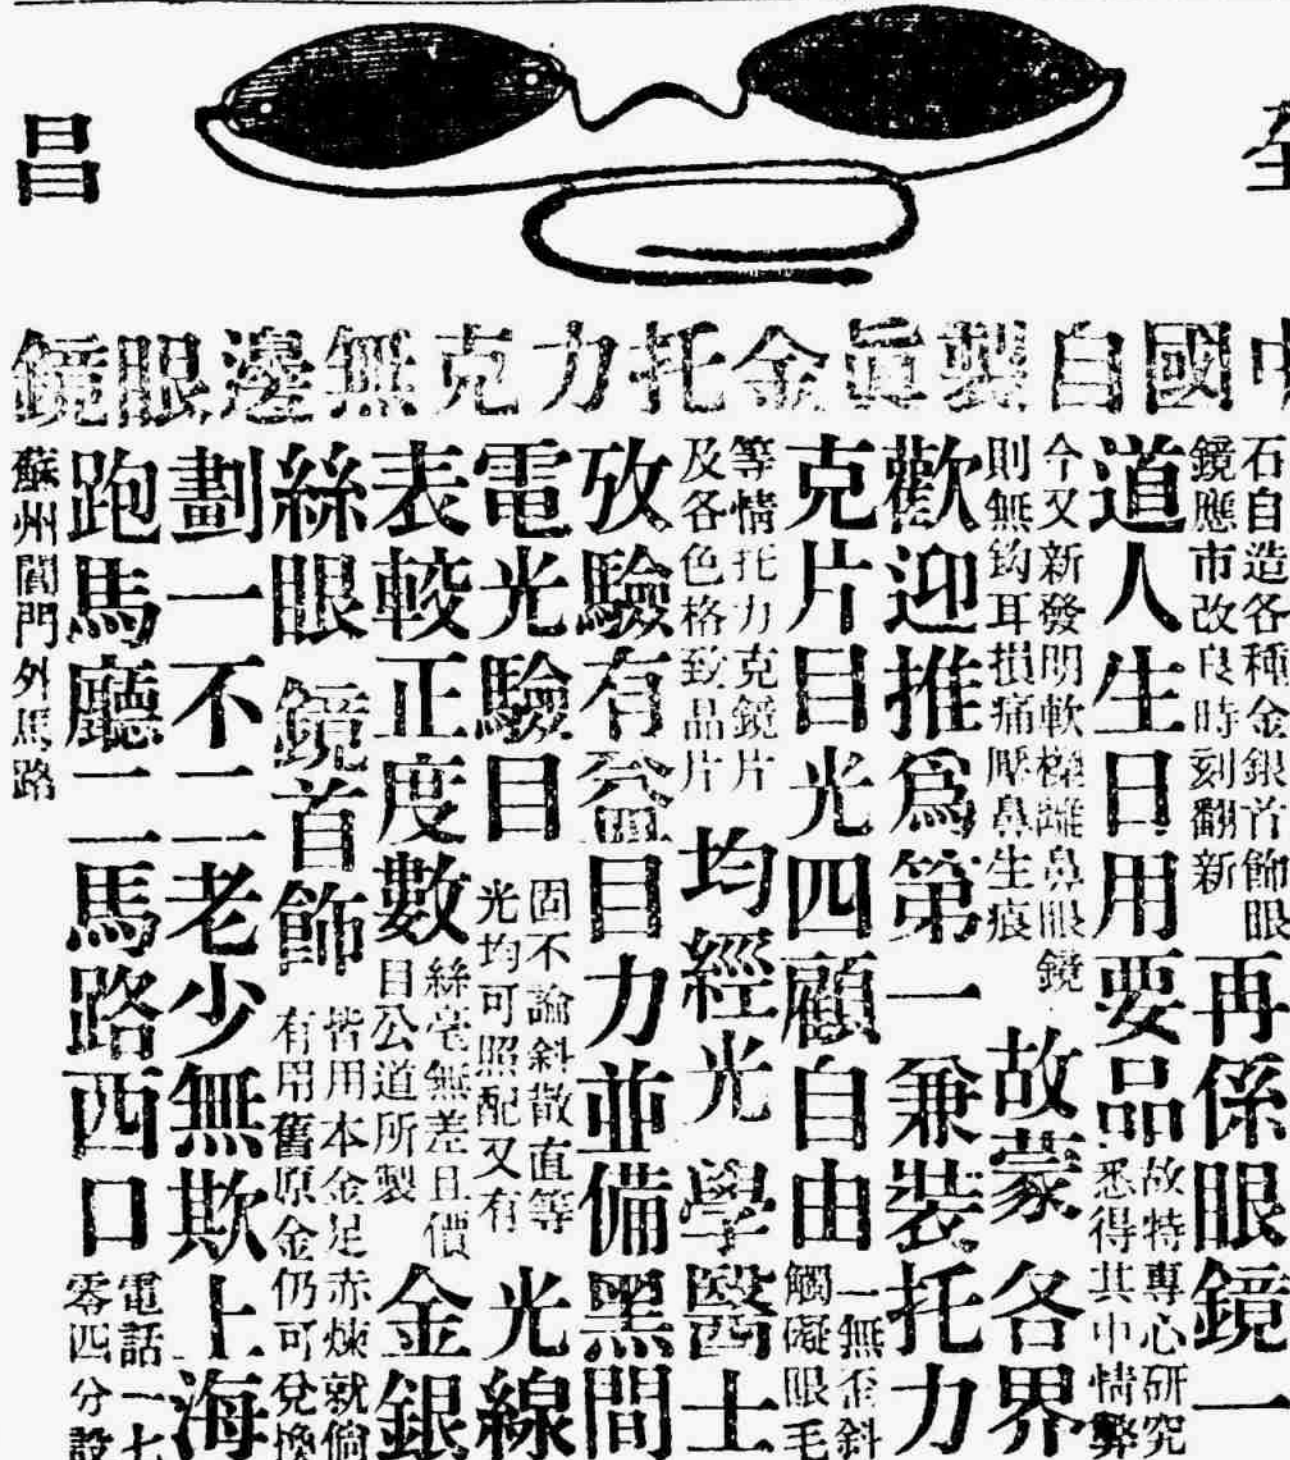 全昌
中國自製眞金托力克無邊眼鏡
石自造各種金銀首飾眼
鏡應市改良時刻翻新
再係眼鏡一
道人生日用要品
故特專心研究
悉得其中情弊
今又新發明軟樑離鼻眼鏡
則無鈎耳損痛壓鼻生痕
故蒙各界
歡迎推爲第一兼裝托力
克片目光四顧自由
一無歪斜
觸礙眼毛
等情托力克鏡片
及各色格致品片
均經光學醫士
攷驗有益目力並備黑間
電光驗目
固不論斜散直等
光均可照配又有
光線
表較正度數
絲毫無差且價
目公道所製
金銀
絲眼鏡首飾
皆用本金足赤煉就倘
有用舊原金仍可兌換
劃一不二老少無欺上海
跑馬廳二馬路西口
電話一七
零四分設
蘇州閶門外馬路